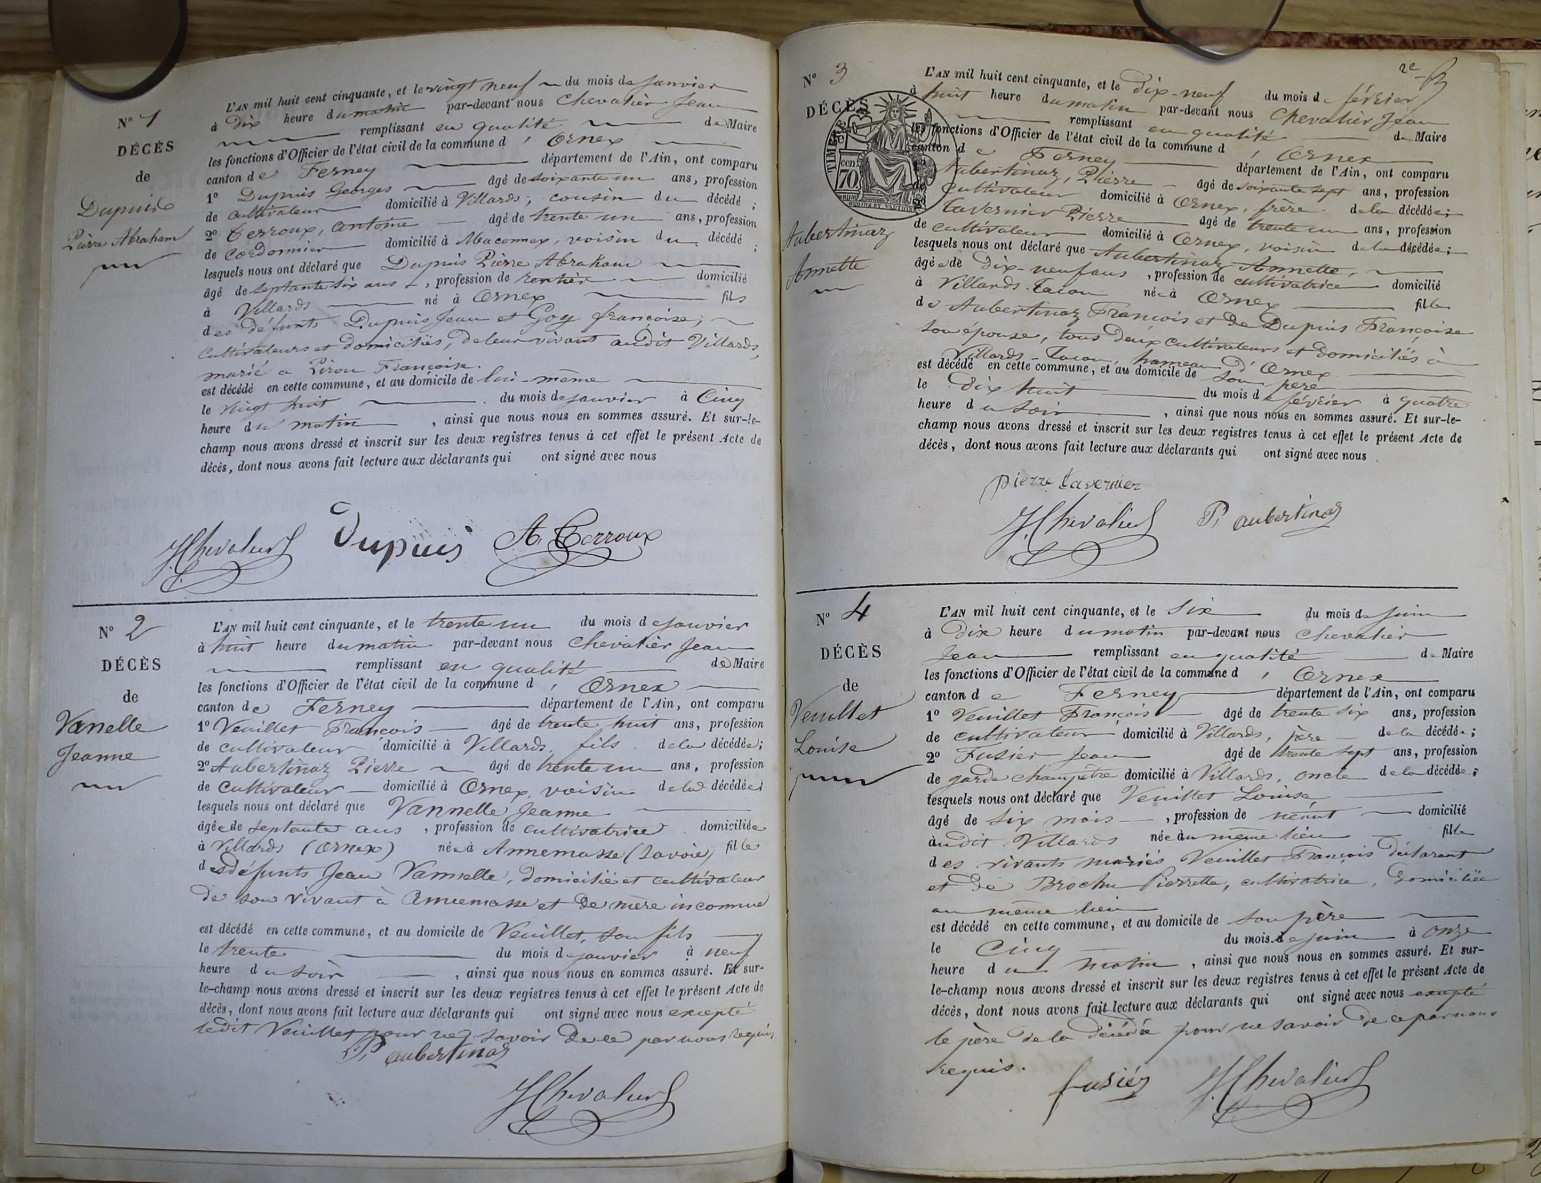 N° 1
DÉCÈS
de
Dupuis
Pierre Abraham
L'AN mil huit cent cinquante, et le vingt neuf du mois de Janvier
à dix heure du matin par-devant nous Chevalier Jean
remplissant en qualité de Maire
les fonctions d'Officier de l'état civil de la commune d'Ornex
canton de Ferney département de l'Ain, ont comparu
1° Dupuis Georges âgé de soixante un ans, profession
de cultivateur domicilié à Villards, cousin du décédé ;
2° Terroux, antoine âgé de trente un ans, profession
de Cordonnier domicilié à Maconnex, voisin du décédé ;
lesquels nous ont déclaré que Dupuis Pierre Abraham
âgé de septante six ans, profession de rentier domicilié
à Villards né à Ornex fils
des défunts Dupuis Jean et Goy françoise,
Cultivateurs et domiciliés, de leur vivant audit Villards,
marié a Piron Françoise.
est décédé en cette commune, et au domicile de lui-même
le vingt huit du mois de Janvier à Cinq
heure du matin, ainsi que nous nous en sommes assuré. Et sur-le-
champ nous avons dressé et inscrit sur les deux registres tenus à cet effet le présent Acte de
décès, dont nous avons fait lecture aux déclarants qui ont signé avec nous
J. Chevalier Dupuis A Terroux
N° 2
DÉCÈS
de
Vanelle
Jeanne
L'AN mil huit cent cinquante, et le trente un du mois de Janvier
à huit heure du matin par-devant nous Chevalier Jean
remplissant en qualité de Maire
les fonctions d'Officier de l'état civil de la commune d'Ornex
canton de Ferney département de l'Ain, ont comparu
1° Veuillet François âgé de trente huit ans, profession
de cultivateur domicilié à Villards, fils de la décédée;
2° Aubertinaz Pierre âgé de trente un ans, profession
de cultivateur domicilié à Ornex, voisin de la décédée;
lesquels nous ont déclaré que Vannelle Jeanne
âgée de septante ans, profession de cultivatrice domiciliée
à Villards (Ornex) née à Annemasse (Savoie) fille
des défunts Jean Vannelle, domicilié et cultivateur
de son vivant à Annemasse et de mère inconnue
est décédé en cette commune, et au domicile de Veuillet, son fils
le trente du mois de Janvier à neuf
heure du soir, ainsi que nous nous en sommes assuré. Et sur-
le-champ nous avons dressé et inscrit sur les deux registres tenus à cet effet le présent Acte de
décès, dont nous avons fait lecture aux déclarants qui ont signé avec nous excepté
ledit Veuillet pour ne savoir de ce par nous requis
P aubertinaz
J. Chevalier
2e
N° 3
DÉCÈS
TIMBRE
cen 70
Aubertinaz
Annette
L'AN mil huit cent cinquante, et le dix-neuf du mois de février
à huit heure du matin par-devant nous Chevalier Jean
remplissant en qualité de Maire
les fonctions d'Officier de l'état civil de la commune d'Ornex
canton de Ferney département de l'Ain, ont comparu
Aubertinaz, Pierre âgé de soixante sept ans, profession
de Cultivateur domicilié à Ornex, frère de la décédée;
2° Tavernier Pierre âgé de trente un ans, profession
de cultivateur domicilié à Ornex, voisin de la décédée;
lesquels nous ont déclaré que Aubertinaz Annette,
âgée de dix-neuf ans, profession de cultivatrice domicilié
à Villards-Tacon née à Ornex fille
de Aubertinaz François et de Dupuis Françoise
son épouse, tous deux cultivateurs et domiciliés à
Villards-Tacon, hameau d'Ornex
est décédé en cette commune, et au domicile de son père
le dix huit du mois de février à quatre
heure du soir, ainsi que nous nous en sommes assuré. Et sur-le-
champ nous avons dressé et inscrit sur les deux registres tenus à cet effet le présent Acte de
décès, dont nous avons fait lecture aux déclarants qui ont signé avec nous
pierre tavernier
J. Chevalier P, aubertinaz
N° 4
DÉCÈS
de
Veuillet
Louise
L'AN mil huit cent cinquante, et le Six du mois de Juin
à Dix heure du matin par-devant nous Chevalier
Jean remplissant en qualité de Maire
les fonctions d'Officier de l'état civil de la commune d'Ornex
canton de Ferney département de l'Ain, ont comparu
1° Veuillet François âgé de trente six ans, profession
de cultivateur domicilié à Villards, père de la décédée;
2° Fusier Jean âgé de trente sept ans, profession
de garde champêtre domicilié à Villards, oncle de la décédée;
lesquels nous ont déclaré que Veuillet Louise
âgé de six mois, profession de néant domicilié
audit Villards née au même lieu fille
des vivants mariés Veuillet François déclarant
et de Brochu Pierrette, cultivatrice, domiciliée
au même lieu
est décédé en cette commune, et au domicile de son père
le Cinq du mois de Juin à onze
heure du matin, ainsi que nous nous en sommes assuré. Et sur-
le-champ nous avons dressé et inscrit sur les deux registres tenus à cet effet le présent Acte de
décès, dont nous avons fait lecture aux déclarants qui ont signé avec nous excepté
le père de la décédée pour ne savoir de ce par nous
requis.
fusiéz J. Chevalier